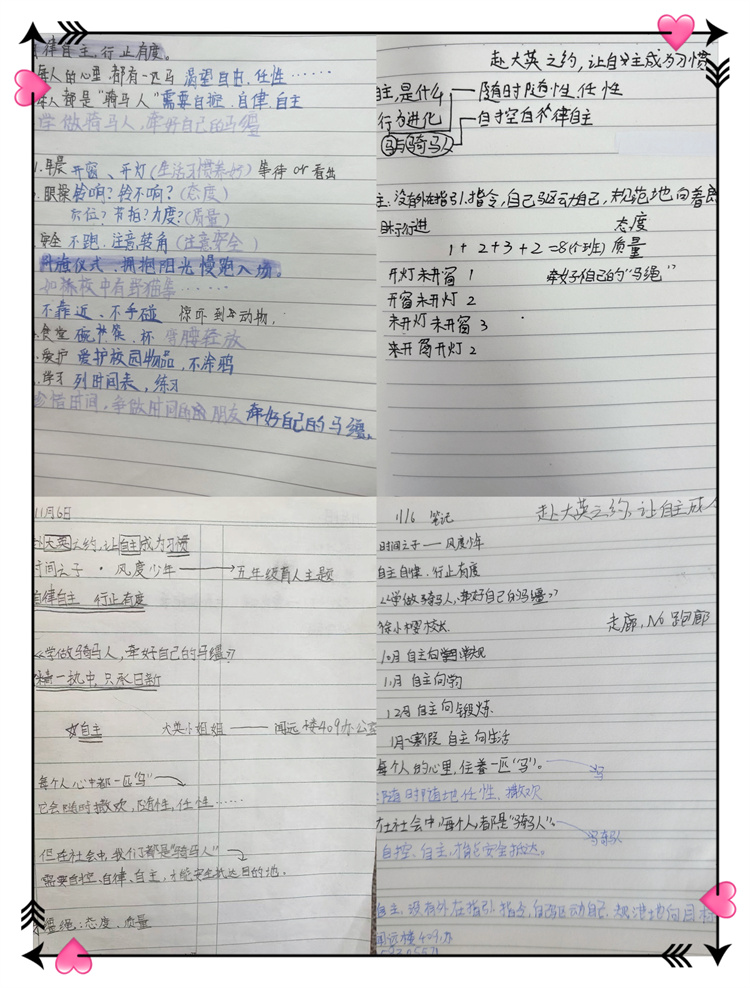 律自主，行止有度。
每人的心里都有一匹马 渴望自由、任性……
人都是“骑马人”需要自控、自律、自主
学做骑马人，牵好自己的马缰
1.早晨 开窗、开灯(生活习惯养好) 等待 or 看出
眼操 铃响？铃不响？(态度)
穴位？节拍？力度？(质量)
安全 不跑、注意转角(注意安全)
升旗仪式、拥抱阳光慢跑入场。
如操校中有野猫等……
不靠近、不手碰 惊吓到小动物，
食堂 碗 筷、杯 弯腰轻放
爱护 爱护校园物品，不涂鸦
学习 列时间表，练习
珍惜时间，争做时间的朋友 牵好自己的马缰。
赴大英之约，让自主成为习惯
自主，是什么 随时随性任性
行为进化 自控自律自主
马与骑马人
主，没有外在指引、指令，自己驱动自己，规范地向着
目标行进 态度
1+2+3+2=8(个班) 质量
开灯未开窗 1 牵好自己的“马绳”
开窗未开灯 2
未开灯未开窗 3
来开窗开灯 2
11月6日
赴大英之约，让自主成为习惯
时间之子·风度少年 五年级育人主题
自律自主 行止有度
《学做骑马人，牵好自己的马缰》
精一执中，只承日新
自主 大英小姐姐——闻远楼409办公室
每个人心中都一匹“马”
它会随时撒欢，随性，任性……
但在社会中，我们都是“骑马人”
需要自控、自律、自主，才能安全抵达目的地。
缰绳：态度、质量
11/6 笔记 赴大英之约，让自主成
时间之子——风度少年
自主自律、行止有度
《学做骑马人，牵好自己的马缰》
徐小樱校长 走廊，No 跑廊
10月 自主向常规
11月 自主向学
12月 自主向锻炼
1月~寒假 自主向生活
每个人的心里，住着一匹“马”。 马
随时随地任性、撒欢
在社会中，每个人都是“骑马人”。
自控、自主，才能安全抵达。
自主，没有外在指引、指令，自己驱动自己，规范地向目标
闻远楼409办